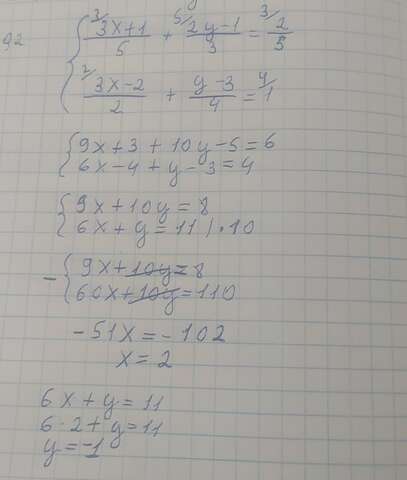 92
{ ³⁄ (3x+1)/5 + ⁵⁄ (2y-1)/3 = ³⁄ 2/5
{ ²⁄ (3x-2)/2 + (y-3)/4 = ⁴⁄ 1
{ 9x+3+10y-5=6
{ 6x-4+y-3=4
{ 9x+10y=8
{ 6x+y=11 /·10
- { 9x+10y=8
{ 60x+10y=110
-51x=-102
x=2
6x+y=11
6·2+y=11
y=-1